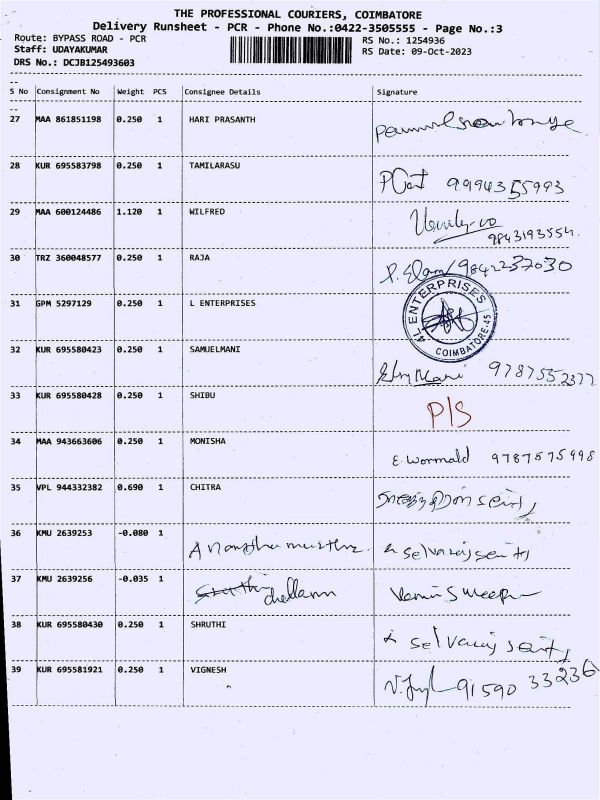 THE PROFESSIONAL COURIERS, COIMBATORE
Delivery Runsheet - PCR - Phone No.:0422-3505555 - Page No.:3
Route: BYPASS ROAD - PCR RS No.: 1254936
Staff: UDAYAKUMAR RS Date: 09-Oct-2023
DRS No.: DCJB125493603
S No Consignment No Weight PCS Consignee Details Signature
27 MAA 861851198 0.250 1 HARI PRASANTH
28 KUR 695583798 0.250 1 TAMILARASU 9994355993
29 MAA 600124486 1.120 1 WILFRED
9843193554
30 TRZ 360048577 0.250 1 RAJA 9842237030
31 GPM 5297129 0.250 1 L ENTERPRISES
4L ENTERPRISES
COIMBATORE-45
32 KUR 695580423 0.250 1 SAMUELMANI
Mani 9787552377
33 KUR 695580428 0.250 1 SHIBU P/S
34 MAA 943663606 0.250 1 MONISHA
E. Wormald 9787575998
35 VPL 944332382 0.690 1 CHITRA
36 KMU 2639253 -0.080 1
selvaraj
37 KMU 2639256 -0.035 1
chellamm
38 KUR 695580430 0.250 1 SHRUTHI
selvaraj
39 KUR 695581921 0.250 1 VIGNESH
91590 33236